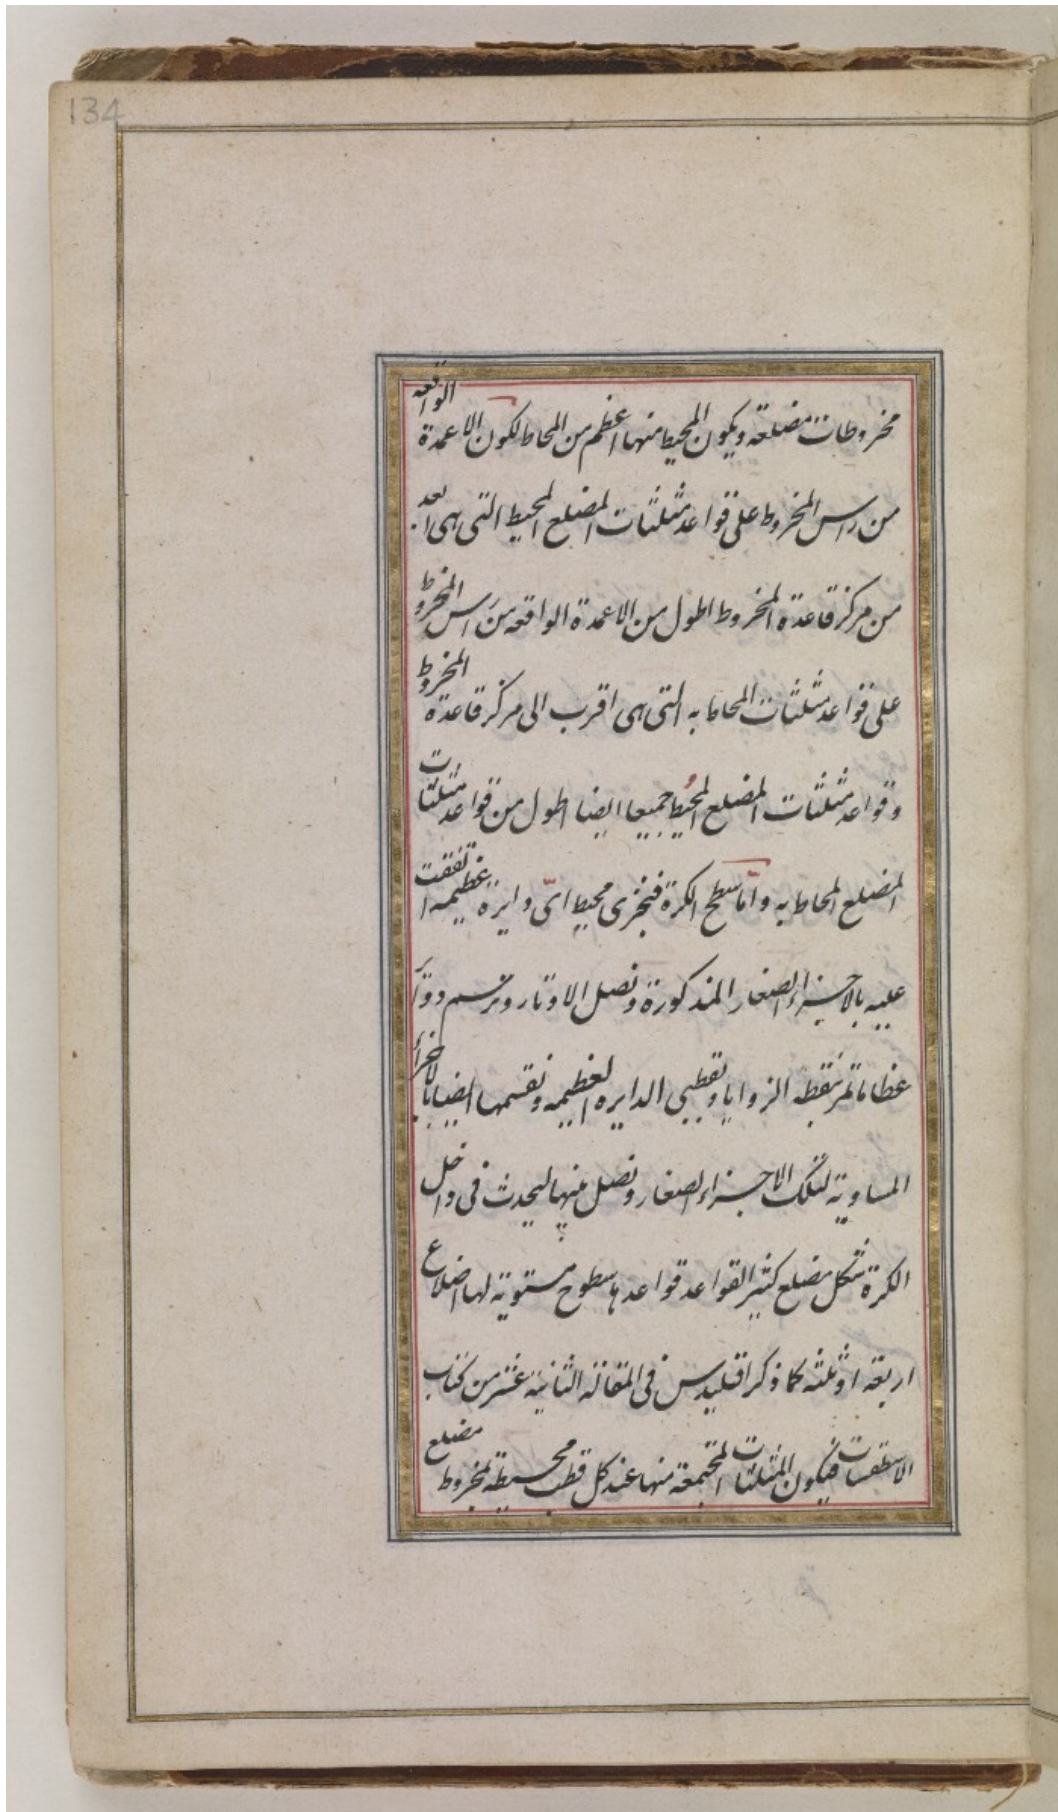 134
مخروطات مضلعة ويكون المحيط منها اعظم من المحاط لكون الاعمدة الواقعه
من راس المخروط على قواعد مثلثات المضلع المحيط التى هى ابعد
من مركز قاعدة المخروط اطول من الاعمدة الواقعه من راس المخروط
على قواعد مثلثات المحاط به التى هى اقرب الى مركز قاعدة المخروط
وقواعد مثلثات المضلع المحيط جميعا ايضا اطول من قواعد مثلثات
المضلع المحاط به واما سطح الكرة فنجزى محيط اىّ دايرة عظيمه اتفقت
عليه بالاجزاء الصغار المذكورة ونصل الاوتار ونرسم دوائر
عظاما تمر بنقط الزوايا وبقطبى الدايره العظيمه ونقسمها ايضا بالاجزاء
المساوية لتلك الاجزاء الصغار ونصل بينها ليحدث فى داخل
الكرة شكل مضلع كثير القواعد قواعدها سطوح مستوية لها اضلاع
اربعة او ثلثه كما ذكر اقليدس فى المقالة الثانية عشر من كتاب
الاسطقسات فيكون المثلثات المجتمعة منها عند كل قطب محيطة بمخروط مضلع